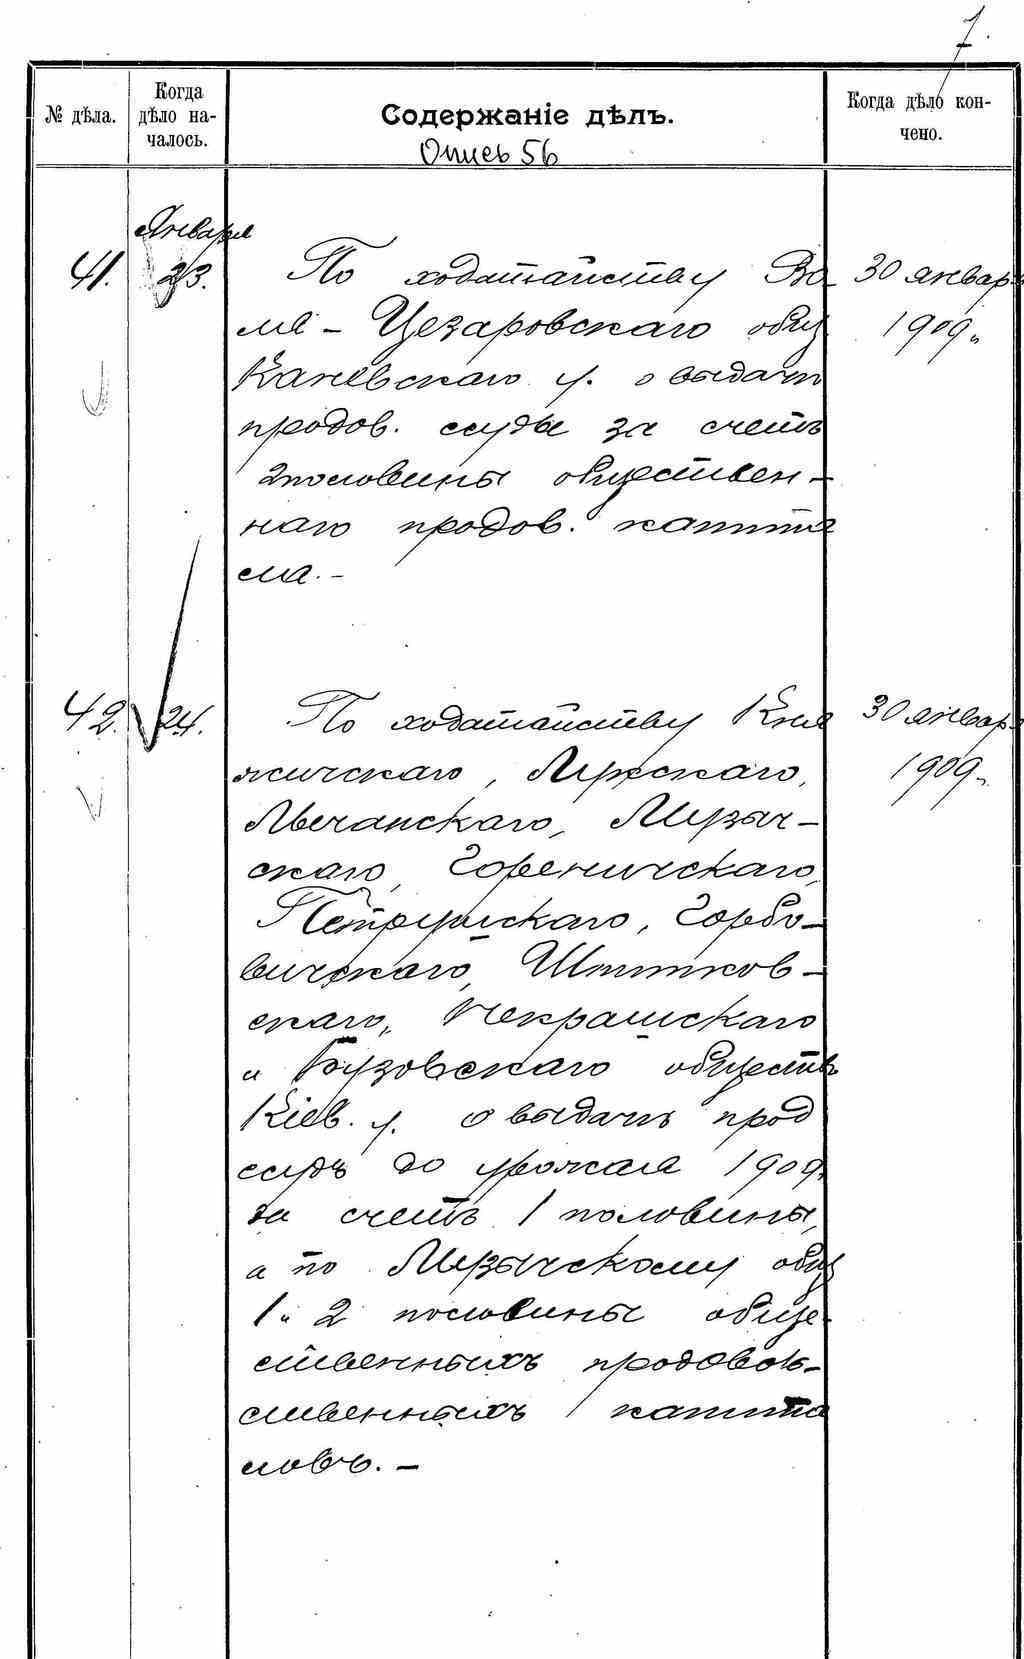 7.
№ дѣла.
Когда
дѣло на-
чалось.
Содержаніе дѣлъ.
Когда дѣло кон-
чено.
Опись 56
Января
41. 23. По ходатайству Во- 30 январ
ля - Цезаровскаго общ 1909.
Каневскаго у. о выдачѣ
продов. ссуды за счетъ
2 половины обществен-
наго продов. капита
ла. -
42. 24. По ходатайству Кня 30 январ
жичскаго, 1909.
Личанскаго, Мрзыч-
скаго, Гореничскаго,
Петрушскаго, Горбо-
вичскаго, Шпитьков-
скаго, Некрашскаго
и Бузовскаго обществъ
Кіев. у. о выдачѣ прод
ссудъ до урожая 1909
за счетъ 1 половины,
а по общ
1 и 2 половины обще-
ственныхъ продоволь-
ственныхъ капита
ловъ. -